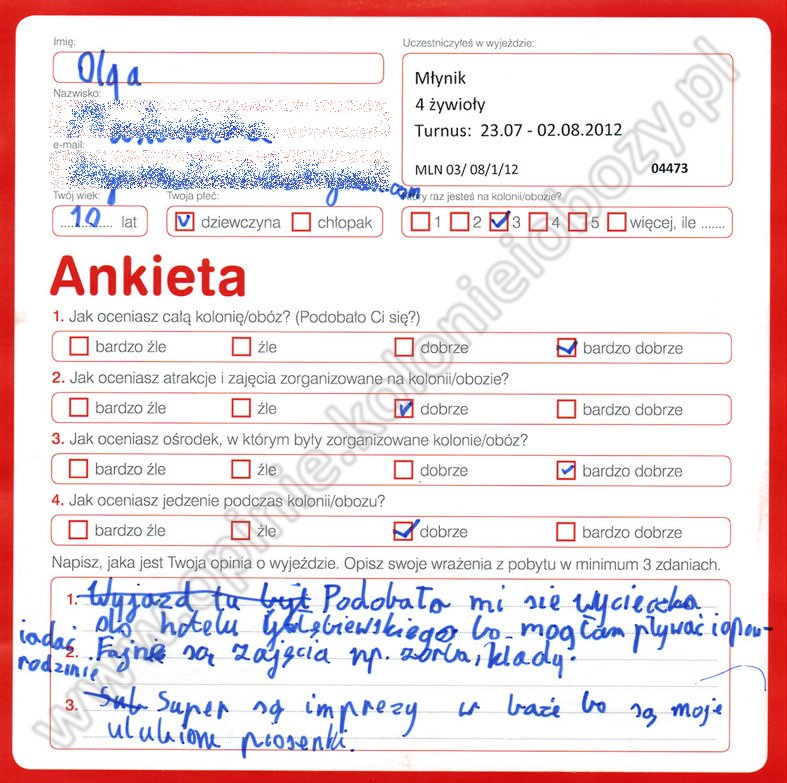 Imię:
Olga
Uczestniczyłeś w wyjeździe:
Młynik
4 żywioły
Turnus: 23.07 - 02.08.2012
MLN 03/ 08/1/12 04473
Nazwisko:
e-mail:
.com
Twój wiek:
10 lat
Twoja płeć:
dziewczyna chłopak
Który raz jesteś na kolonii/obozie?
1 2 3 4 5 więcej, ile .......
Ankieta
1. Jak oceniasz całą kolonię/obóz? (Podobało Ci się?)
bardzo źle źle dobrze bardzo dobrze
2. Jak oceniasz atrakcje i zajęcia zorganizowane na kolonii/obozie?
bardzo źle źle dobrze bardzo dobrze
3. Jak oceniasz ośrodek, w którym były zorganizowane kolonie/obóz?
bardzo źle źle dobrze bardzo dobrze
4. Jak oceniasz jedzenie podczas kolonii/obozu?
bardzo źle źle dobrze bardzo dobrze
Napisz, jaka jest Twoja opinia o wyjeździe. Opisz swoje wrażenia z pobytu w minimum 3 zdaniach.
1. Wyjazd tu był Podobało mi się wycieczka
do hotelu Gołębiewskiego bo mogłam pływać i opow-
iadać rodzinie
2. Fajnie są zajęcia np. zorba, klady.
3. Sub Super są imprezy w bazie bo są moje
ulubione piosenki.
www.opinie.kolonieiobozy.pl